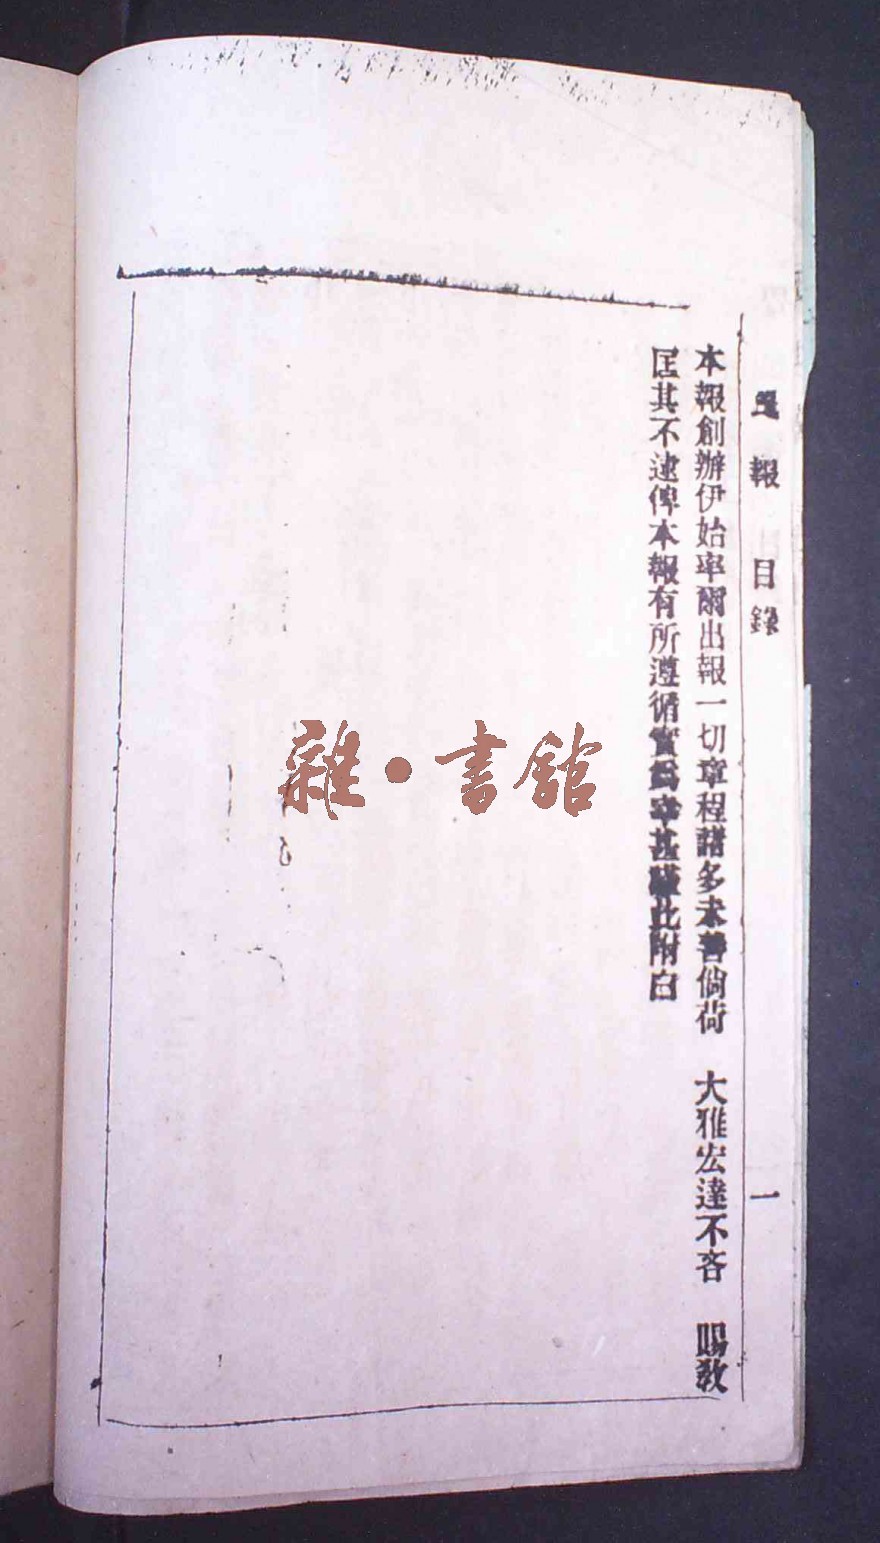 報 目錄
一
本報創辦伊始率爾出報一切章程諸多未善倘荷 大雅宏達不吝 賜敎
匡其不逮俾本報有所遵循實爲幸甚謹此附白
雜·書館